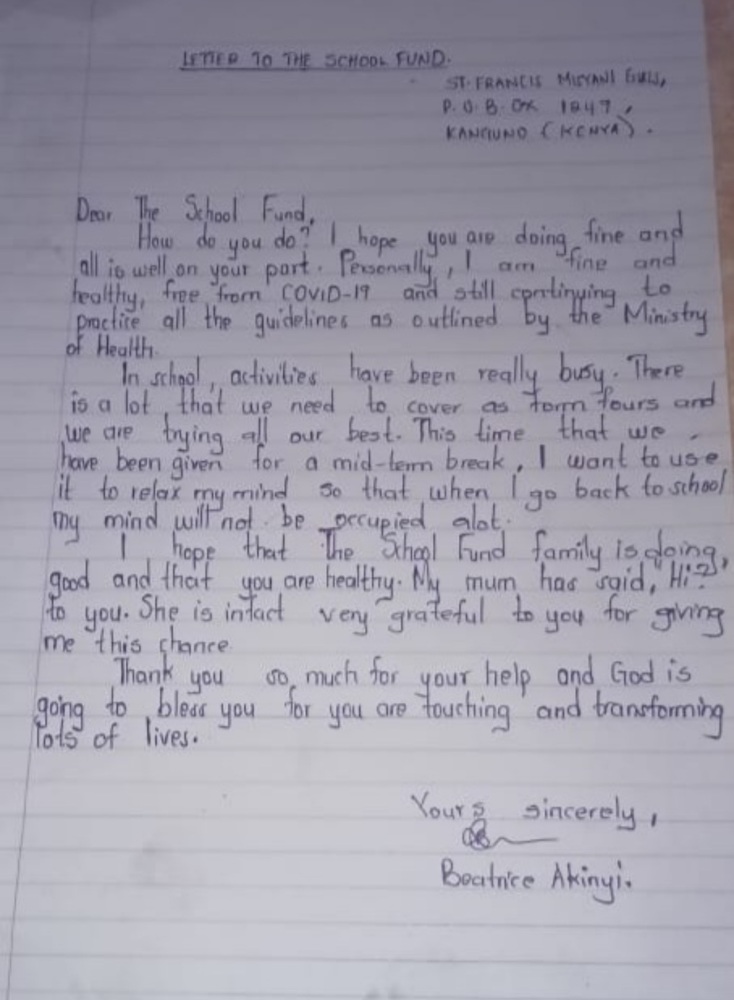 LETTER TO THE SCHOOL FUND.
ST. FRANCIS MISYANI GIRLS,
P.O.BOX 1847,
(KENYA).
Dear The School Fund,
How do you do? I hope you are doing fine and
all is well on your part. Personally, I am fine and
healthy, free from COVID-19 and still continuing to
practice all the guidelines as outlined by the Ministry
of Health.
In school, activities have been really busy. There
is a lot that we need to cover as form fours and
we are trying all our best. This time that we
have been given for a mid-term break, I want to use
it to relax my mind so that when I go back to school
my mind will not be occupied alot.
I hope that The School Fund family is doing,
good and that you are healthy. My mum has said, "Hi?"
to you. She is infact very grateful to you for giving
me this chance
Thank you so much for your help and God is
going to bless you for you are touching and transforming
lots of lives.
Yours sincerely,
Beatrice Akinyi.